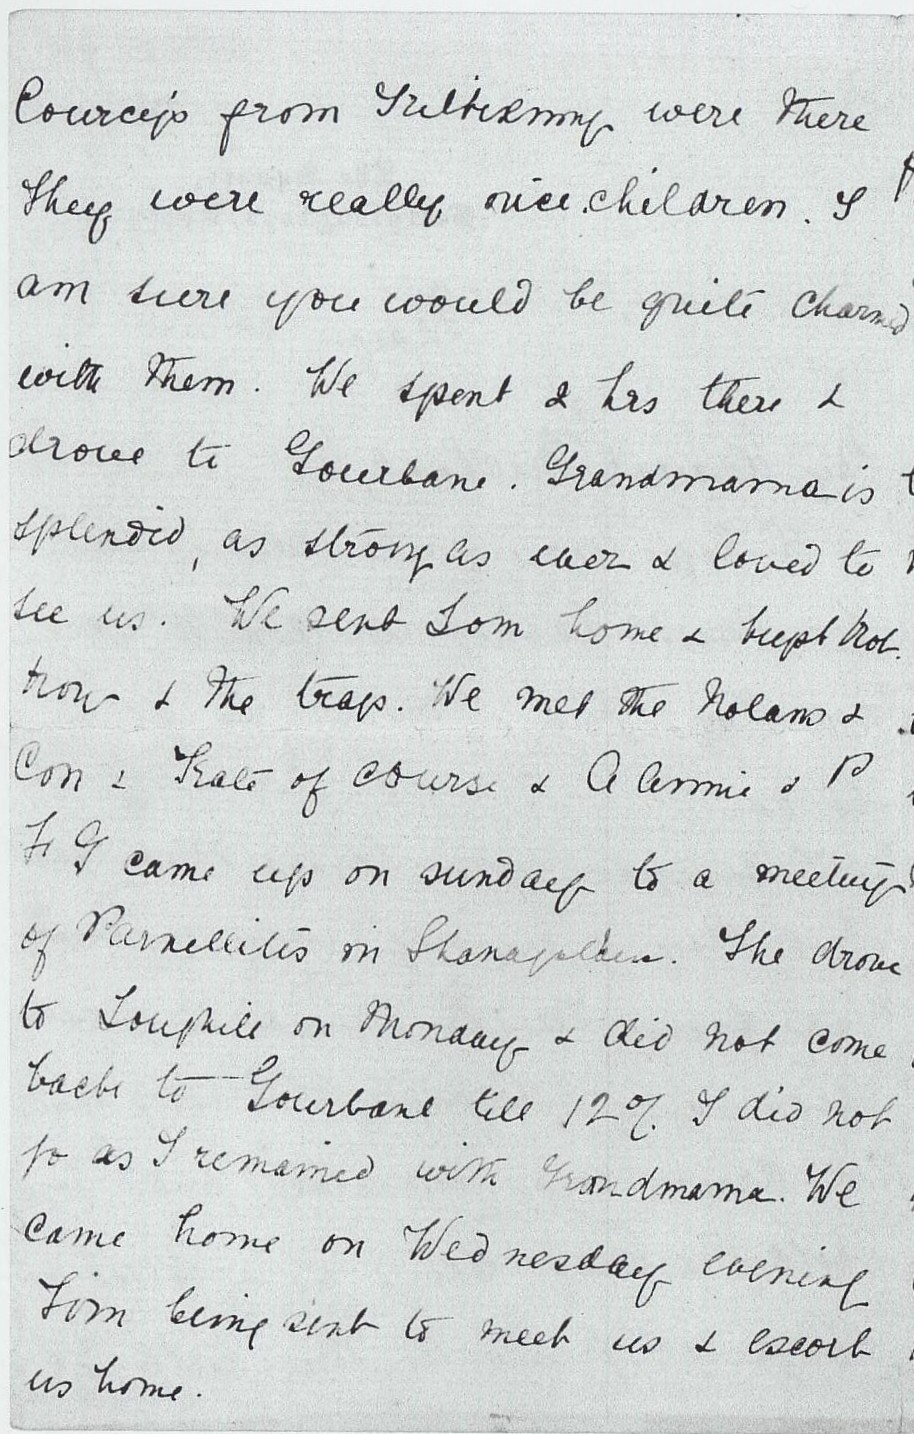 Courcey's from were there
They were really nice children. I
am sure you would be quite charmed
with them. We spent 2 hrs there &
drove to Gourbane. Grandmama is
splendid, as strong as ever & loved to
see us. We sent Tom home & kept
& the trap. We met the Nolans &
Con & Kate of course & A Annie & P
F G came up on sunday to a meeting
of Parnellites in Shanagolden. She drove
to Loughill on Monday & did not come
back to Gourbane till 12 I did not
go as I remained with Grandmama. We
came home on Wednesday evening
being sent to meet us & escort
us home.